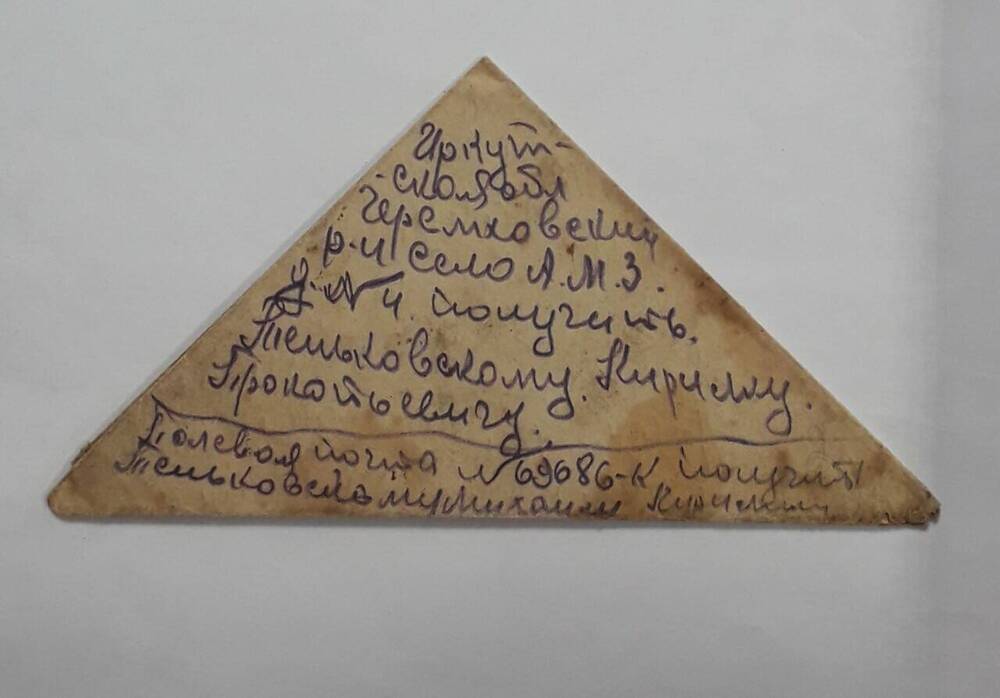 Иркут-
-ская обл
Черемховский
р-н село А.М.З.
у. № 4. получить.
Теньковскому. Кириллу.
Прокопьевичу.
Полевая почта № 69686-К получить
Теньковскому Михаилу Кирилл